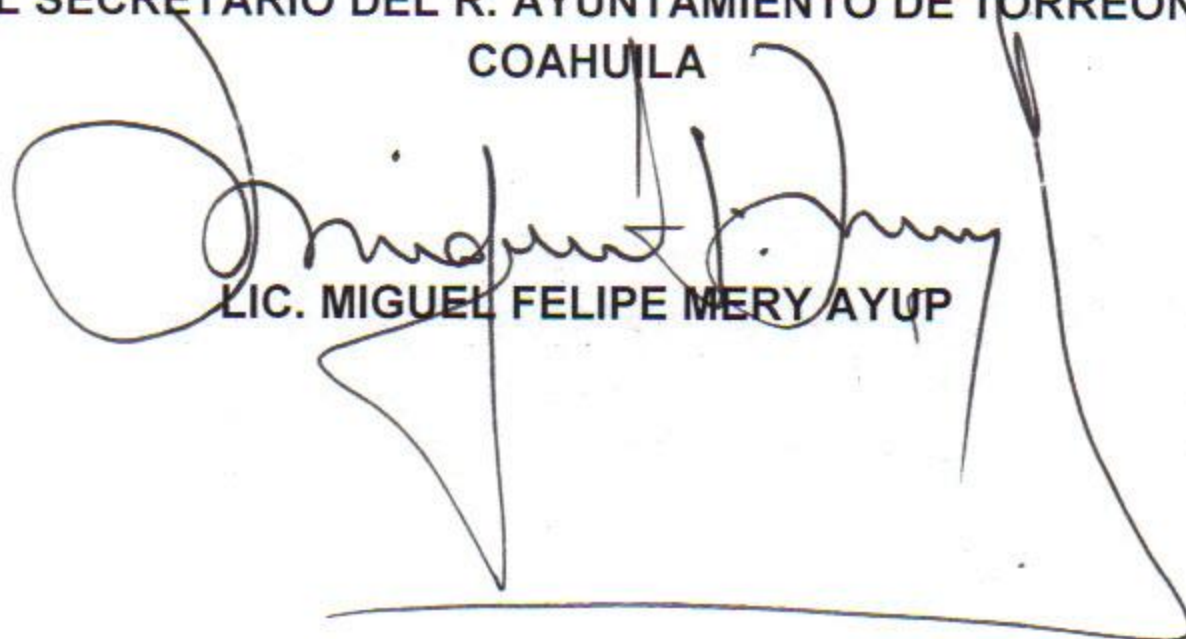 L SECRETARIO DEL R. AYUNTAMIENTO DE TORREON
COAHUILA
LIC. MIGUEL FELIPE MERY AYUP